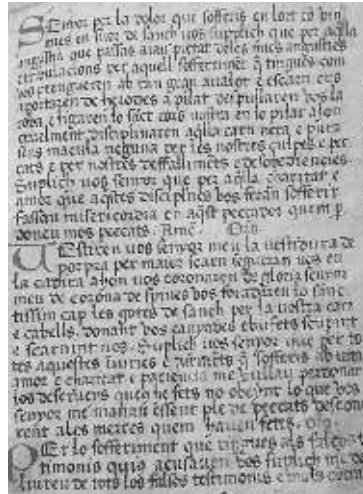 Senyor per la dolor que sofferis en lort co vin
en suor de sanch vos suplich que per aqlla
angustia que passas aiau pietat deles mies angusties
tribulacions per aquell soffertiment q tingues com
vos prengueren ab tan gran avalot e escarn e us
aportaren de herodes a pilat despullaren vos la
roba e ligaren lo sact cors vostra en lo pilar a
cruelment disciplinaren aqlla carn neta e pura
sens macula neguna per les nostres culpes e pec
cats e per nostres deffalliments e desobediencies
Suplich vos senyor que per aqlla charitat e
amor que aqsts desciplines vos feran sofferir
fassau misericordia en aqst peccador quem p
doneu mos peccats. Ame. Oro
Vestiren vos senyor meu la vestidura de
porpra per maior scarn segueran vos en
la cadira ahon vos coronaren de gloria senyor
meu de corona de spines vos foradaren lo sanc
tissim cap les gotes de sanch per la vostra cara
e cabells. donant vos canyades e bufets scupint
e scarnint vos. Suplich vos senyor que per to
tes aquestes iniuries e turments q sofferis ab tanta
amor e charitat e paciencia me vullau perdonar
los deserveys queus he fets no obeynt lo que vos
senyor me manau essent ple de peccats desconei
xent ales merces quem haveu fetes. Oro
Per lo sofferiment que tingues als falços tes
timonis quius acusaven vos suplich me de
liureu de tots los falsos testimonis e mals